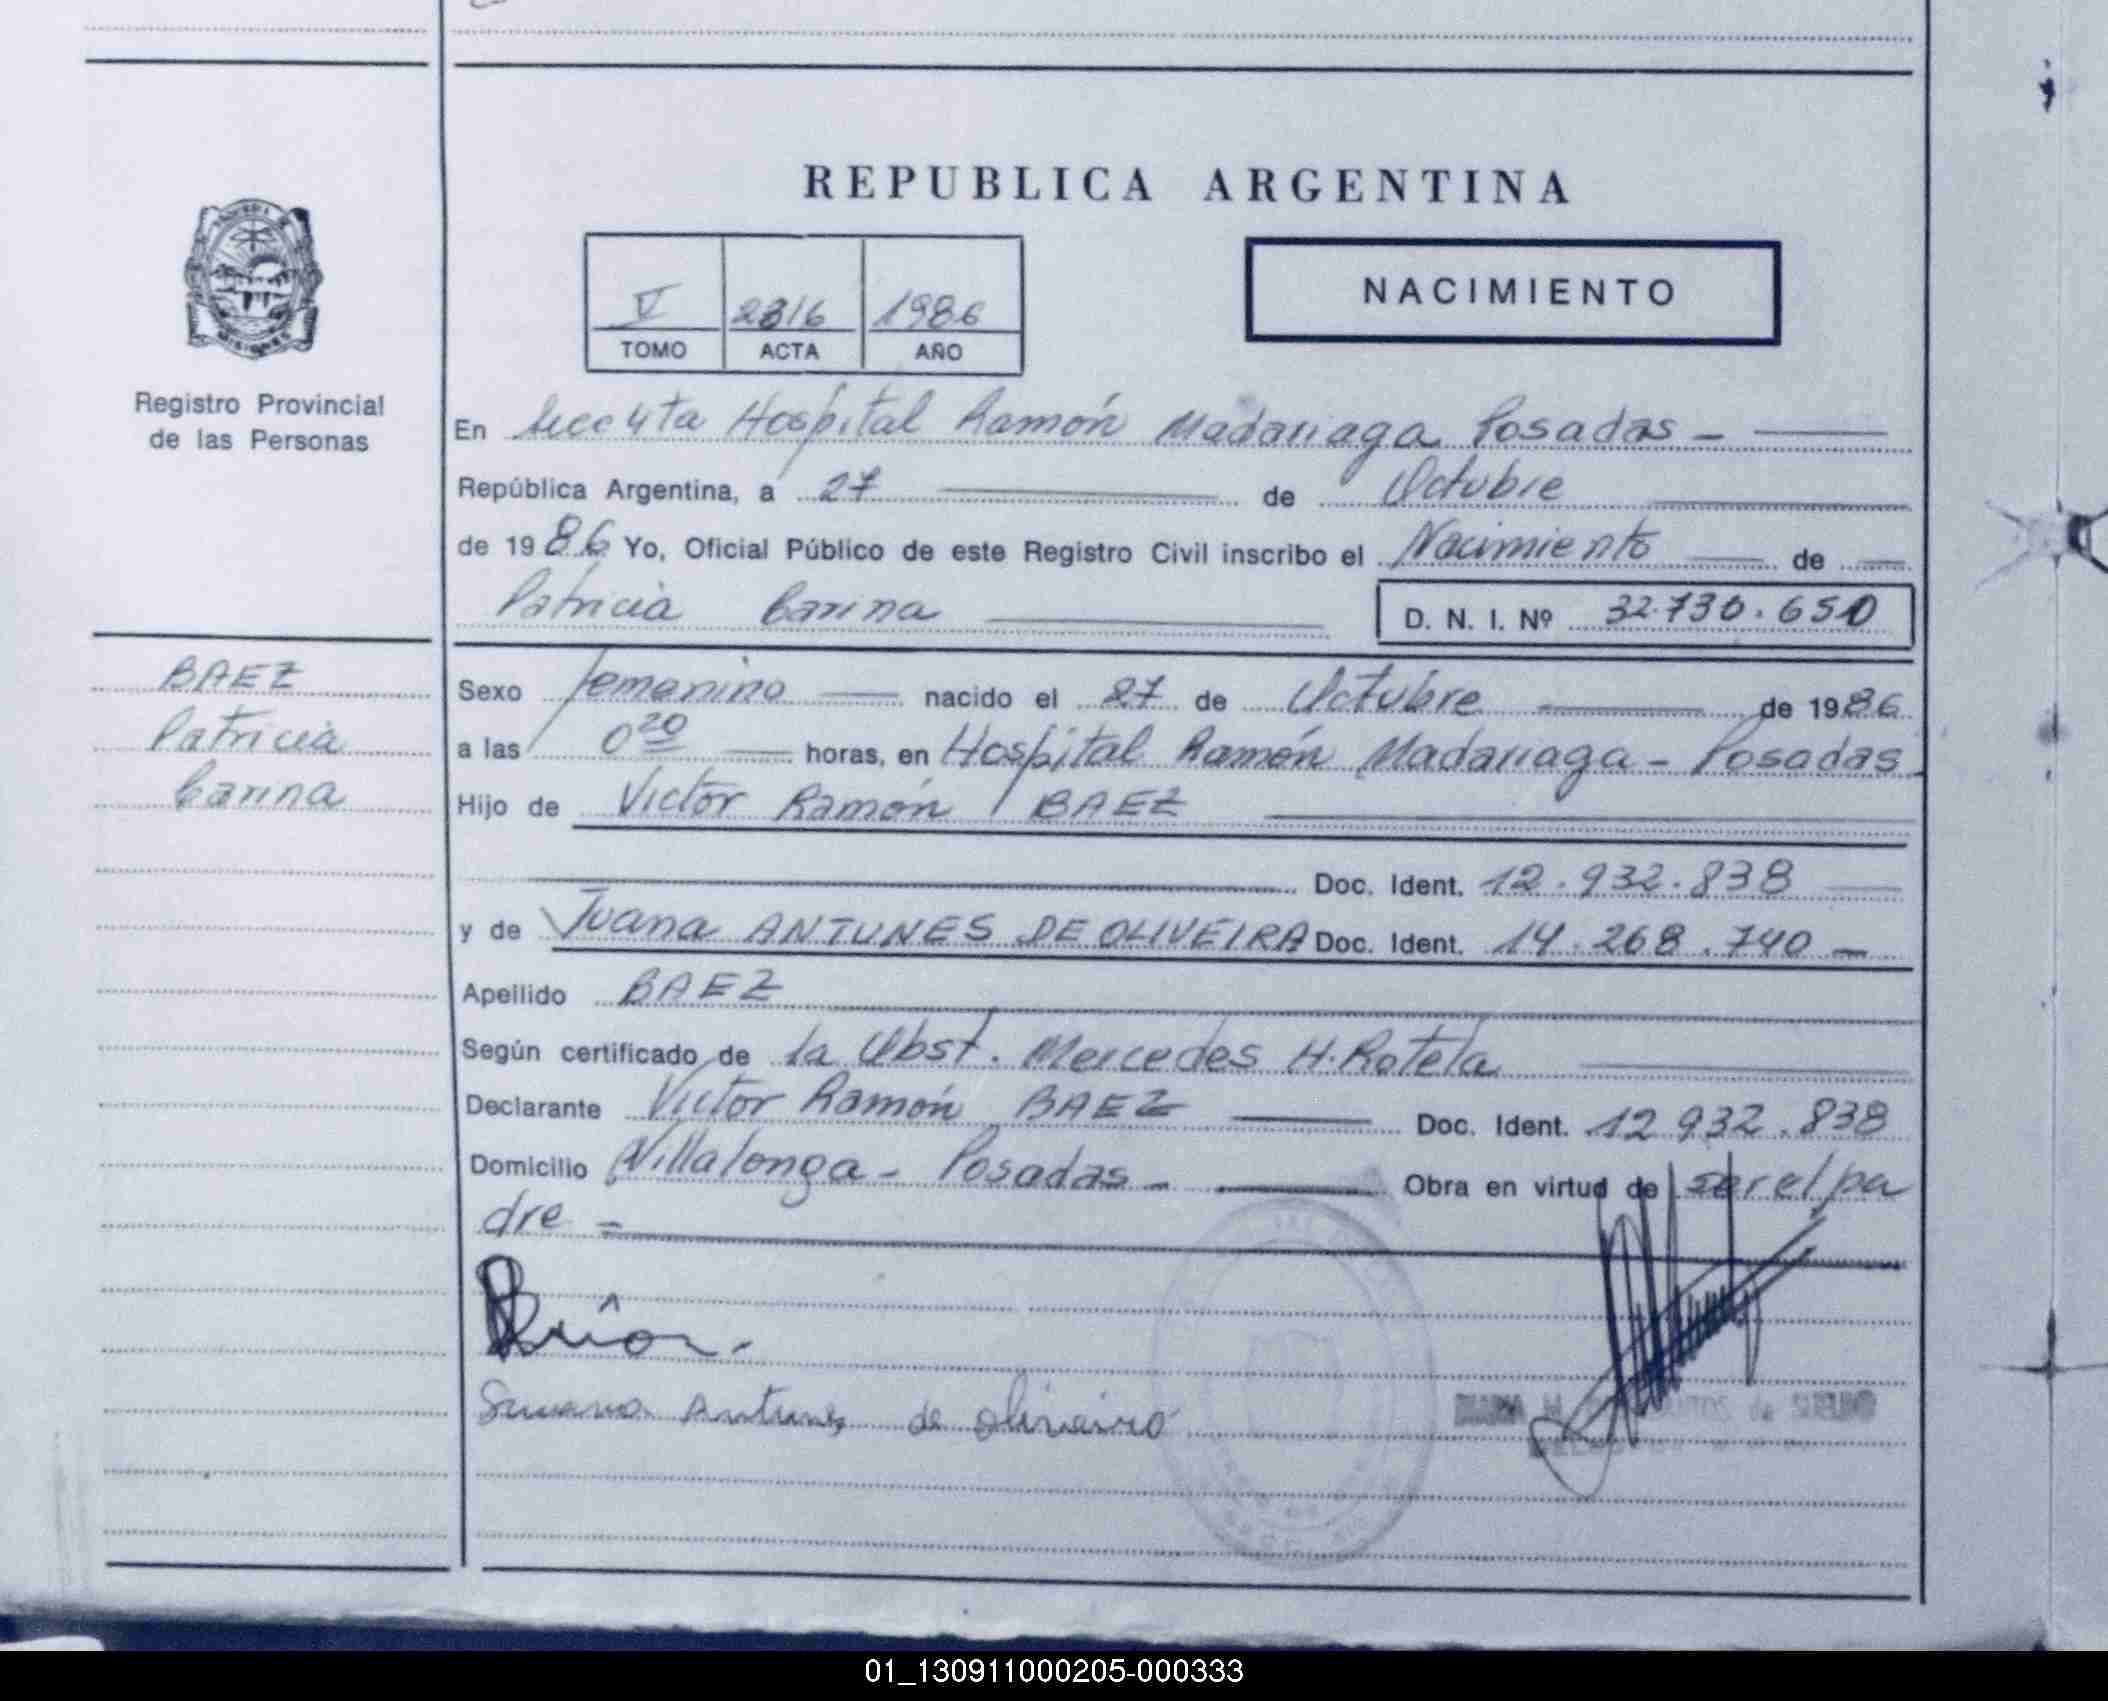 REPUBLICA ARGENTINA
V 2316 1986
TOMO ACTA AÑO
NACIMIENTO
Registro Provincial
de las Personas
En Secc 4ta Hospital Ramón Madariaga Posadas -
República Argentina, a 27 de Octubre
de 1986 Yo, Oficial Público de este Registro Civil inscribo el Nacimiento de
Patricia Carina D. N. I. Nº 32.730.650
BAEZ
Patricia
Carina
Sexo femenino nacido el 27 de Octubre de 1986
a las 0 20 horas, en Hospital Ramón Madariaga - Posadas
Hijo de Victor Ramón BAEZ
Doc. Ident. 12.932.838
y de Juana ANTUNES DE OLIVEIRA Doc. Ident. 14.268.740 -
Apellido BAEZ
Según certificado de la Obst. Mercedes H. Rotela
Declarante Victor Ramón BAEZ Doc. Ident. 12 932.838
Domicilio Villalonga - Posadas - Obra en virtud de ser el pa
dre =
Antunes de oliveira
01_130911000205-000333